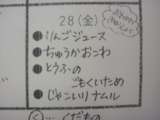 28(金)
りんごジュース
ちゅうかおこわ
とうふの
ごもくいため
じゃこいりナムル
くだもの